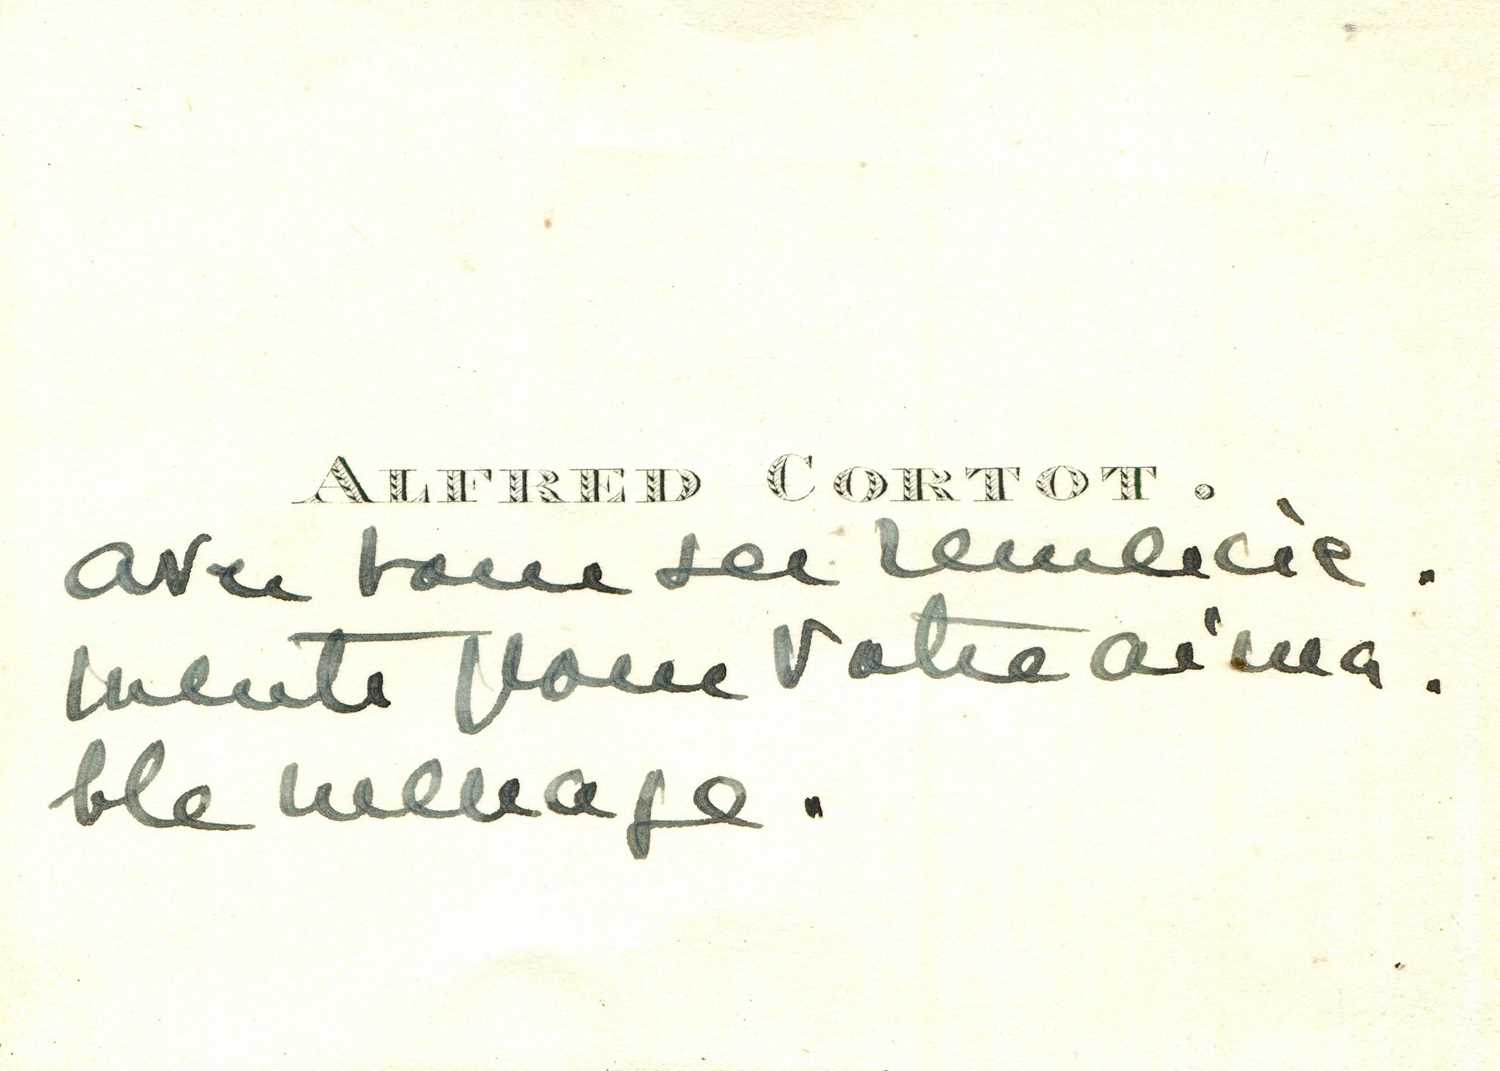 ALFRED CORTOT.
avec tous ses remercie.
ments pour votre aima.
ble message.